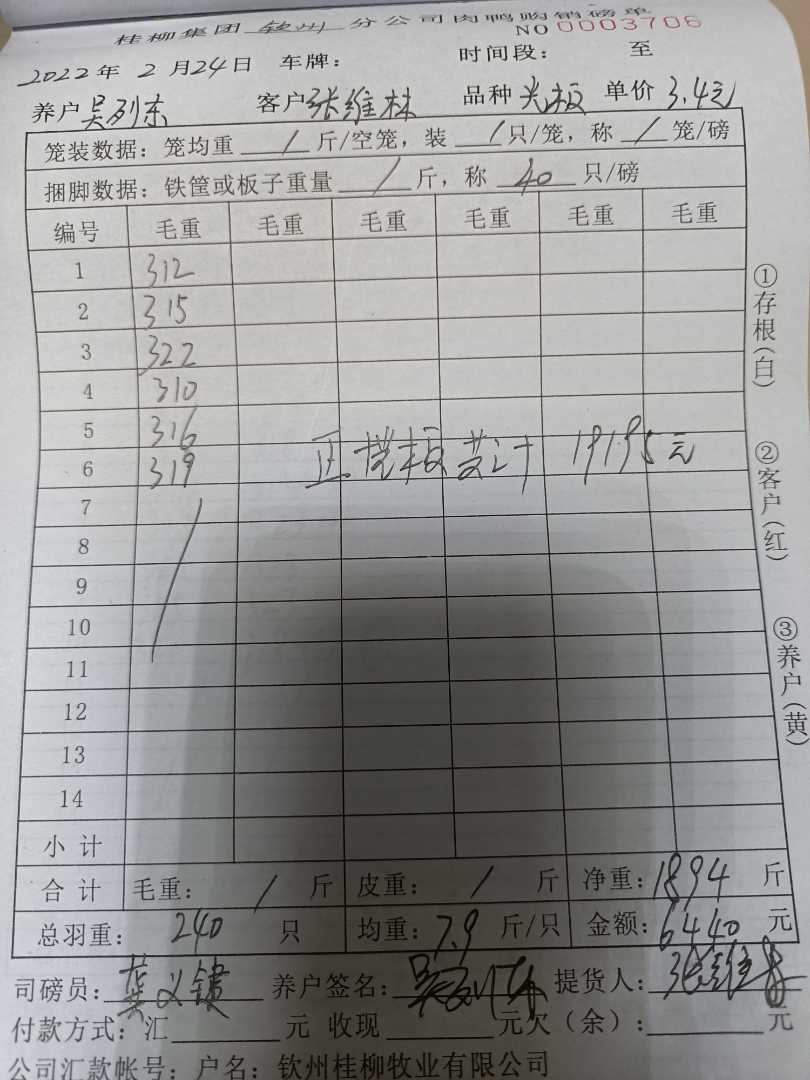 桂柳集团 钦州 分公司肉鸭购销磅单
NO 0003706
2022年 2月24日 车牌: 时间段: 至
养户 吴列东 客户 张维林 品种 光板 单价 3.4元
笼装数据: 笼均重 / 斤/空笼, 装 / 只/笼, 称 / 笼/磅
捆脚数据: 铁筐或板子重量 / 斤, 称 40 只/磅
编号 毛重 毛重 毛重 毛重 毛重 毛重
1 312
2 315
3 322
4 310
5 316
6 319 正 板 共计 19195元
7
8
9
10
11
12
13
14
小计
合计 毛重: / 斤 皮重: / 斤 净重: 1894 斤
总羽重: 240 只 均重: 7.9 斤/只 金额: 6440 元
司磅员: 养户签名: 提货人: 张维
付款方式: 汇 元 收现 元欠(余): 元
公司汇款帐号: 户名: 钦州桂柳牧业有限公司
①存根(白)
②客户(红)
③养户(黄)